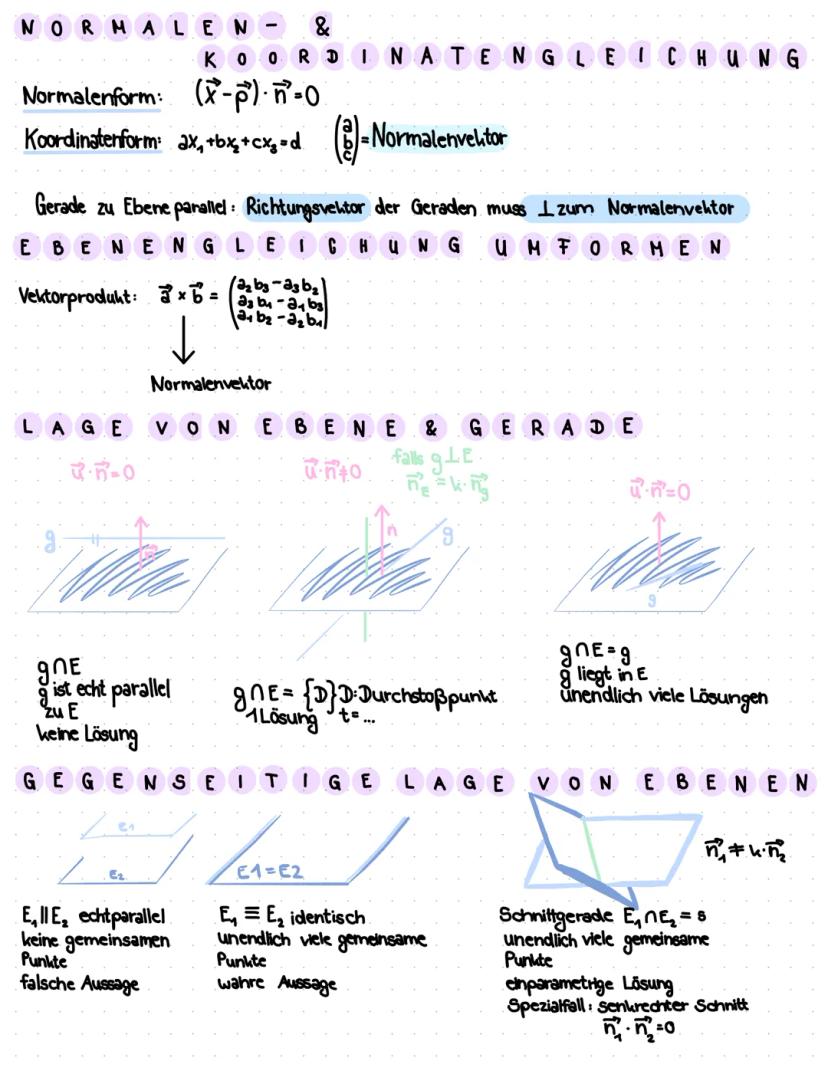 NORMALEN- &
KOORDINATENGLEICHUNG
Normalenform: (x⃗ - p⃗) · n⃗ = 0
Koordinatenform: ax₁+bx₂+cx₃=d (a b c) = Normalenvektor
Gerade zu Ebene parallel: Richtungsvektor der Geraden muss ⊥ zum Normalenvektor
EBENENGLEICHUNG UMFORMEN
Vektorprodukt: a⃗ × b⃗ = (a₂b₃ - a₃b₂
a₃b₁ - a₁b₃
a₁b₂ - a₂b₁)
Normalenvektor
LAGE VON EBENE & GERADE
u⃗·n⃗=0
u⃗·n⃗≠0
falls g⊥E
n⃗_E = k·n⃗_g
u⃗·n⃗=0
g
n⃗
n
g
g
g∩E
g ist echt parallel
zu E
keine Lösung
g∩E = {D} D: Durchstoßpunkt
1 Lösung t=...
g∩E = g
g liegt in E
unendlich viele Lösungen
GEGENSEITIGE LAGE VON EBENEN
E₁
E₂
E1=E2
n⃗₁ ≠ k·n⃗₂
E₁ || E₂ echtparallel
keine gemeinsamen
Punkte
falsche Aussage
E₁ ≡ E₂ identisch
unendlich viele gemeinsame
Punkte
wahre Aussage
Schnittgerade E₁∩E₂ = s
unendlich viele gemeinsame
Punkte
einparametrige Lösung
Spezialfall: senkrechter Schnitt
n⃗₁ · n⃗₂ = 0